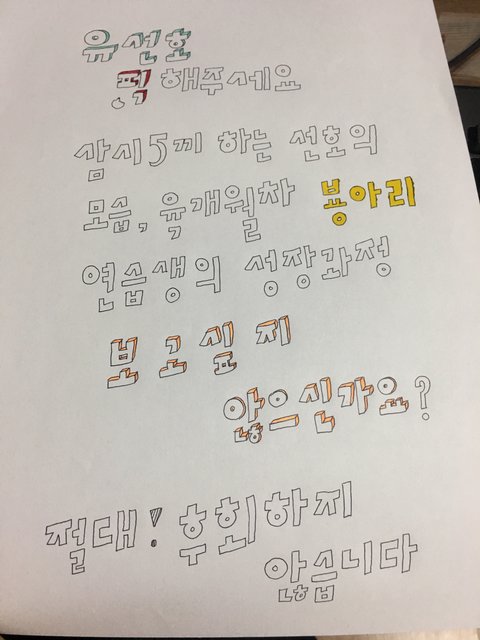 유선호
픽 해주세요
삼시5끼 하는 선호의
모습, 육개월차 뵹아리
연습생의 성장과정
보고싶지
않으신가요?
절대! 후회하지
않습니다